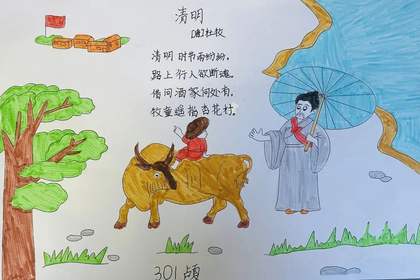 清明
[唐]杜牧
清明时节雨纷纷,
路上行人欲断魂。
借问酒家何处有,
牧童遥指杏花村。
301